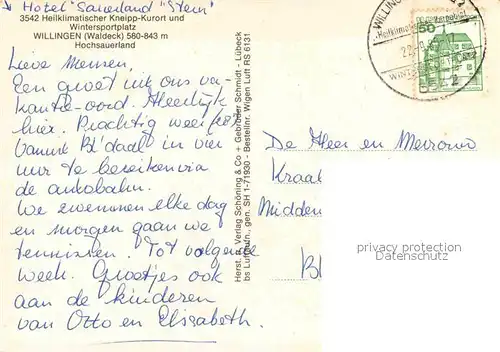 ↳ Hotel "Sauerland" "Stern"
3542 Heilklimatischer Kneipp-Kurort und
Wintersportplatz
WILLINGEN (Waldeck) 560-843 m
Hochsauerland
Lieve Mensen,
Een groet uit ons va-
kantie-oord. Heerlijk
hier. Prachtig weer (28°)
Vanuit Bl'daal in vier
uur te bereiken via
de autobahn.
We zwemmen elke dag
en morgen gaan we
tennissen. Tot volgende
week. Groetjes ook
aan de kinderen
van Otto en Elisabeth.
Herst. und Verlag Schöning & Co + Gebrüder Schmidt - Lübeck
bs Luftaufn., gen. SH 1-71930 - Bestellnr. Wigen Luft RS 6131
WILLINGEN
Heilklimat
50
De Heer en Mevrouw
Kraai
Midden
Bl
protection copyright
Datenschutz